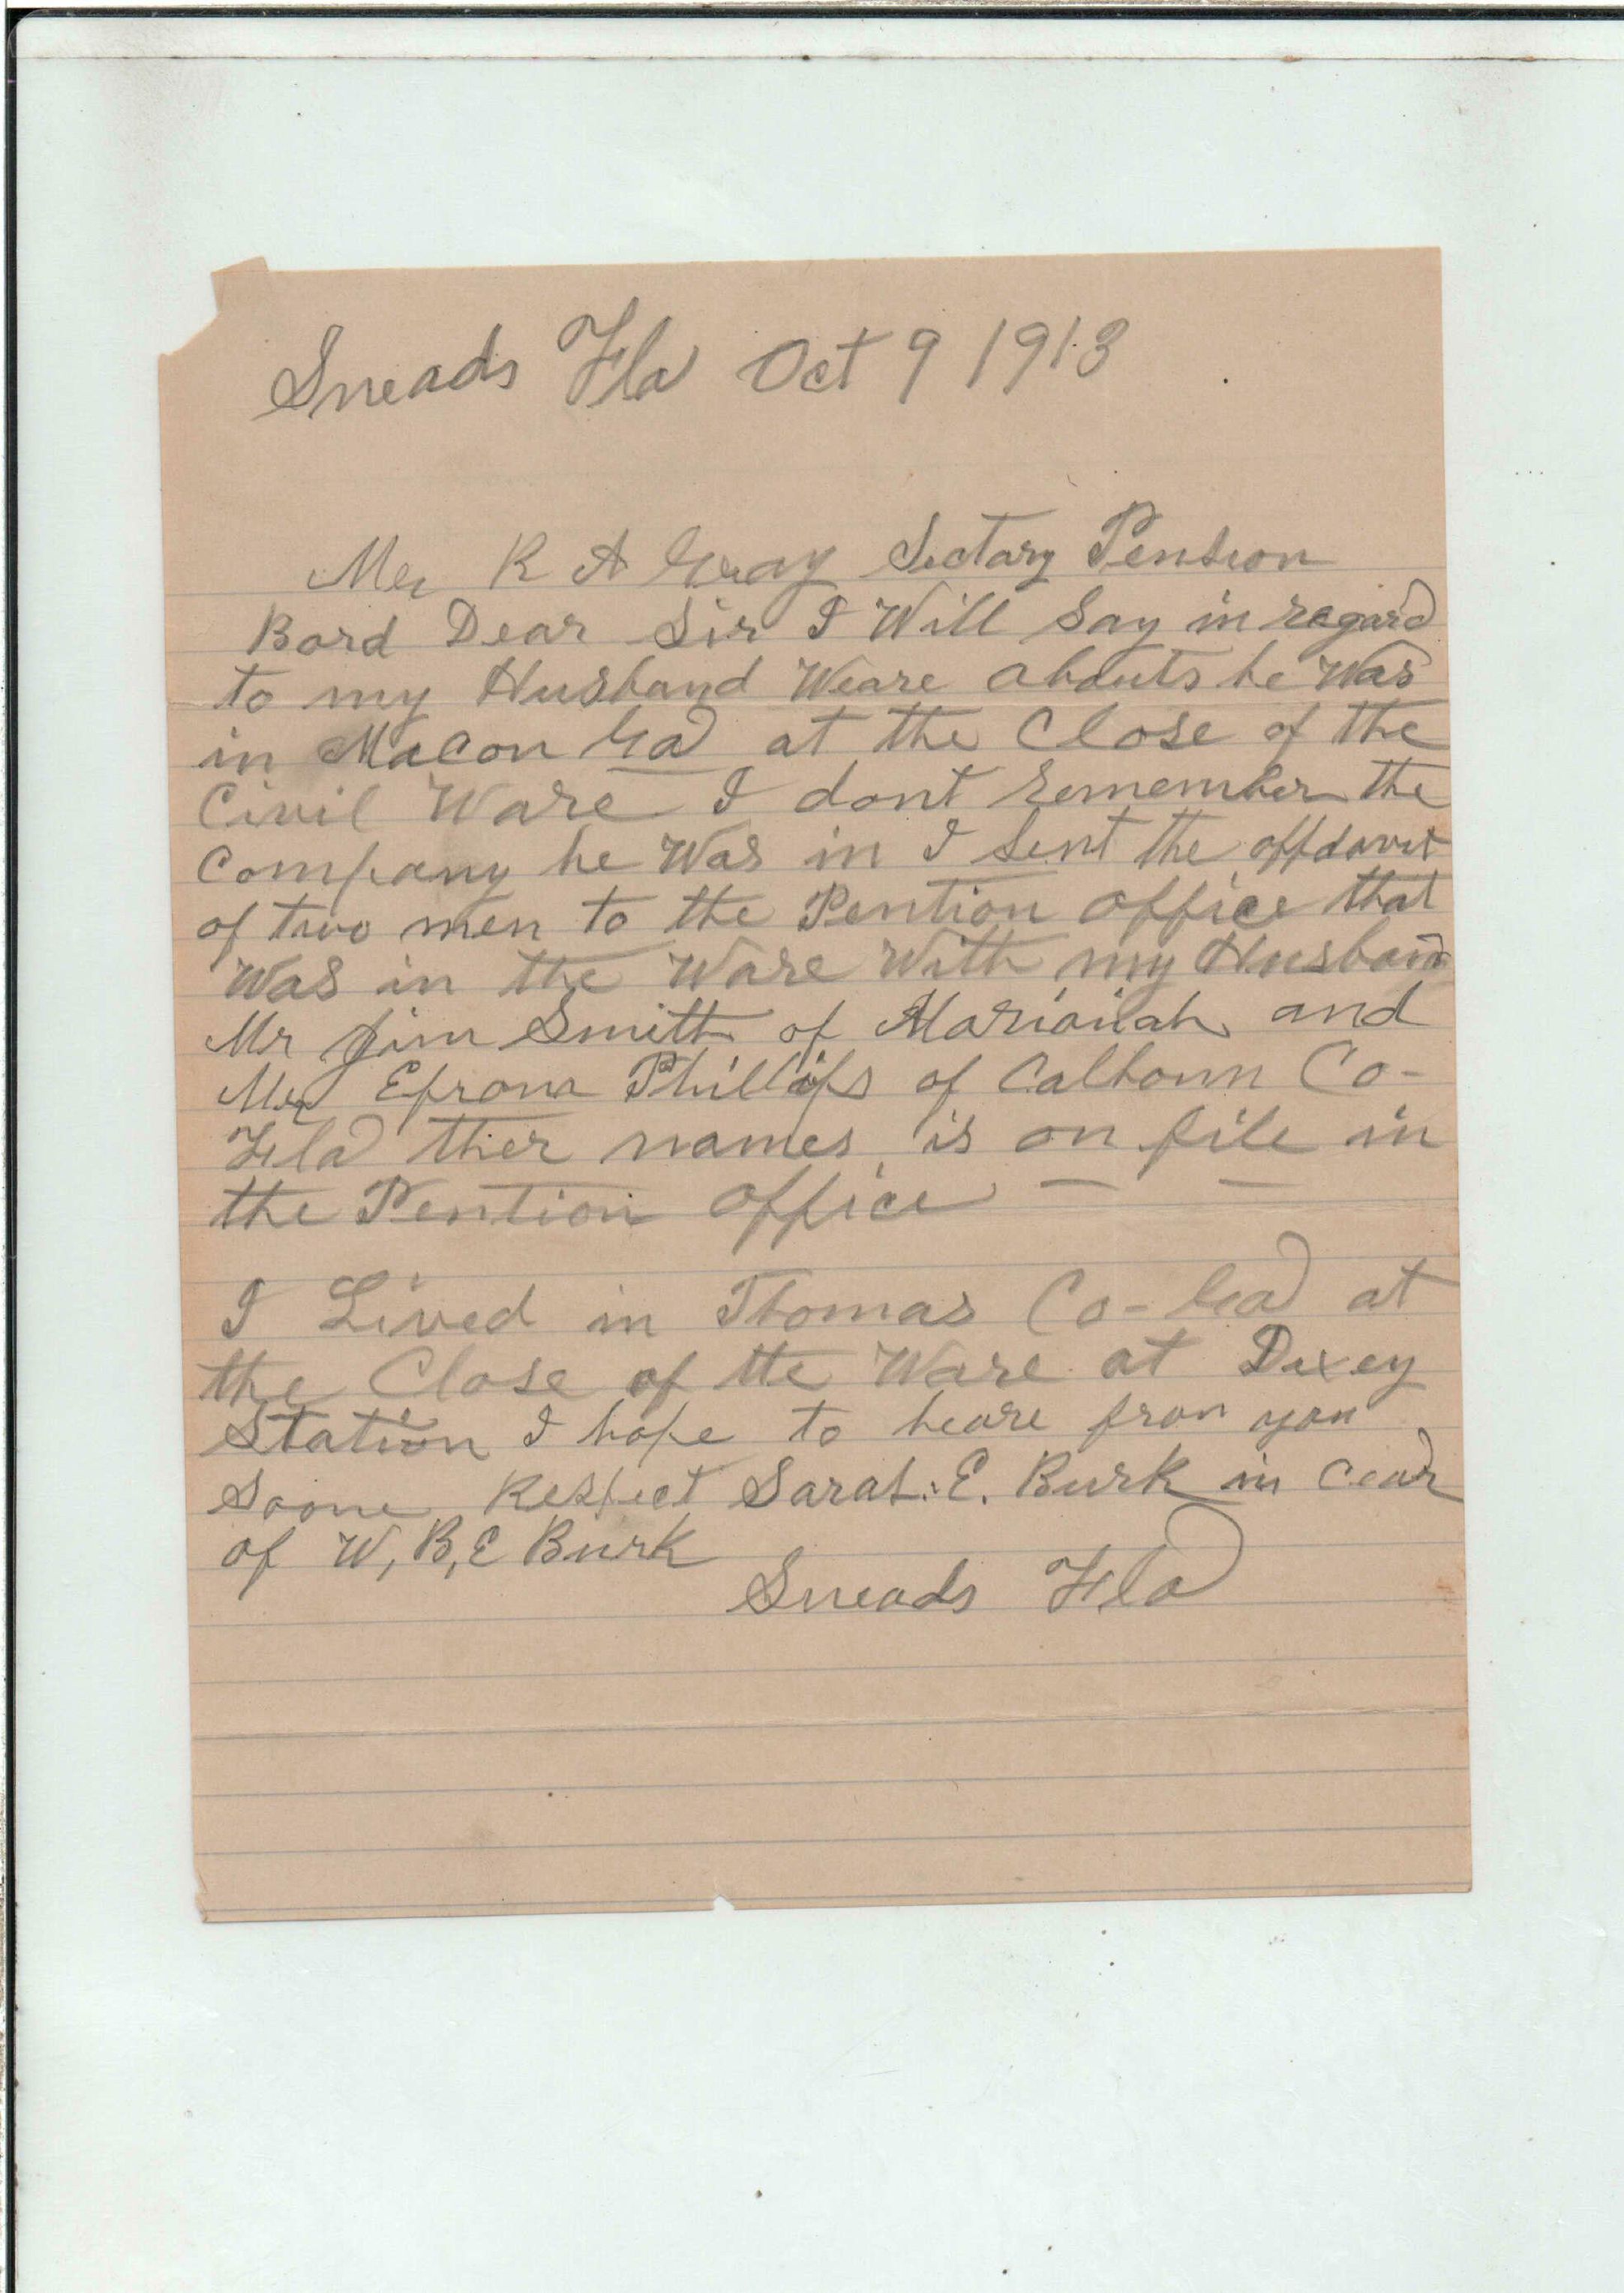 Sneads Fla Oct 9 1913
Mr R A Gray Sectary Pension
Bord Dear Sir I Will Say in regard
to my Husband Weare abouts he Was
in Macon Ga at the Close of the
Civil Ware I dont remember the
Company he Was in I Sent the affdavit
of two men to the Pention office that
Was in the Ware With my Husband
Mr Jim Smith of and
Mr Efrom Phillips of Calhoun Co-
Fla ther names is on file in
the Pention office — —
I Lived in Thomas Co- Ga at
the Close of the Ware at Dixey
Station I hope to heare from you
Soone Respect Sarah. E. Burk in Cear
of W, B, E Burk
Sneads Fla